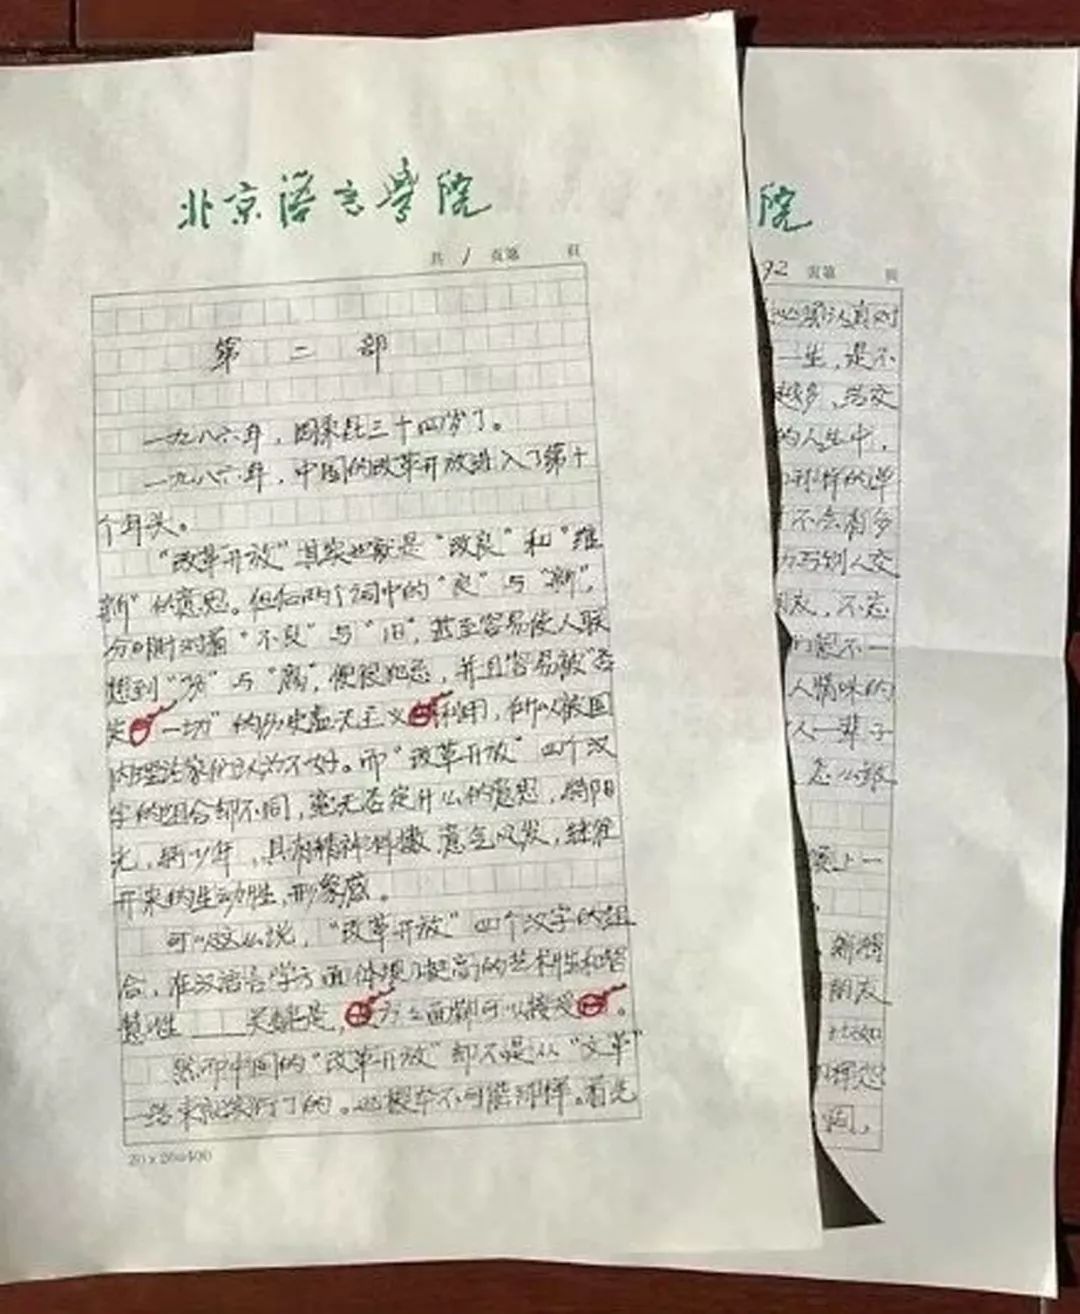 北京语言学院
共 1 页第 页
第 二 部
一九八六年，周秉昆三十四岁了。
一九八六年，中国的改革开放进入了第十
个年头。
"改革开放"其实也就是"改良"和"维
新"的意思。但后两个词中的"良"与"新"，
分明针对着"不良"与"旧"，甚至容易使人联
想到"朽"与"腐"，便很犯忌，并且容易被"否
定一切"的历史虚无主义利用，所以被国
内理论家们认为不好。而"改革开放"四个汉
字的组合却不同，毫无否定什么的意思，特阳
光，特少年，具有精神抖擞 意气风发，继往
开来的生动性、形象感。
可以这么说，"改革开放"四个汉字的组
合，在汉语言学方面体现了极高的艺术性和智
慧性——关键是，方方面面都可以接受。
然而中国的"改革开放"却不是从"文革"
一结束就实行了的。也根本不可能那样。首先
20×20=400
院
92 页第 页
必须认真对
一生，是不
越多，结交
的人生中，
那样的单
不会有多
为与别人交
朋友，不忘
的是不一
人情味的
人一辈子
怎么
上一
朋友
比如